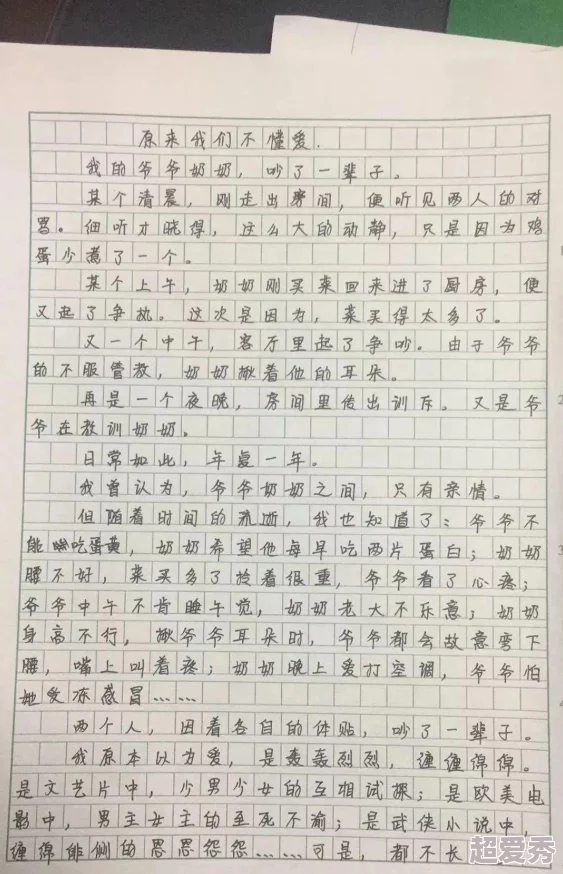 原来我们不懂爱.
我的爷爷奶奶，吵了一辈子。
某个清晨，刚走出房间，便听见两人的对
骂。细听才晓得，这么大的动静，只是因为鸡
蛋少煮了一个。
某个上午，奶奶刚买菜回来进了厨房，便
又起了争执。这次是因为，菜买得太多了。
又一个中午，客厅里起了争吵。由于爷爷
的不服管教，奶奶揪着他的耳朵。
再是一个夜晚，房间里传出训斥。又是爷
爷在教训奶奶。
日常如此，年复一年。
我曾认为，爷爷奶奶之间，只有亲情。
但随着时间的流逝，我也知道了：爷爷不
能吃蛋黄，奶奶希望他每早吃两片蛋白；奶奶
腰不好，菜买多了拎着很重，爷爷看了心疼；
爷爷中午不肯睡午觉，奶奶老大不乐意；奶奶
身高不行，揪爷爷耳朵时，爷爷都会故意弯下
腰，嘴上叫着疼；奶奶晚上爱打空调，爷爷怕
她受冻感冒……
两个人，因着各自的体贴，吵了一辈子。
我原本以为爱，是轰轰烈烈，缠缠绵绵。
是文艺片中，少男少女的互相试探；是欧美电
影中，男主女主的至死不渝；是武侠小说中，
缠绵悱恻的恩恩怨怨……可是，都不长
超爱秀